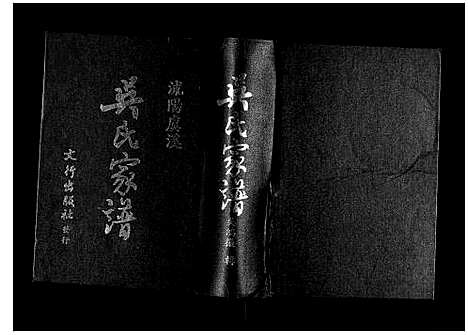 流陽慶溪
吳氏家譜
文行出版社 發行
吳氏家譜